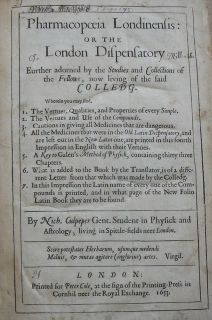 Pharmacopœia Londinensis:
OR THE
London Dispensatory
Further adorned by the Studies and Collections of
the Fellows, now living of the said
COLLEDG.
Wherein you may find,
1. The Vertues, Qualities, and Properties of every Simple.
2. The Vertues and Use of the Compounds.
3. Cautions in giving all Medicines that are dangerous.
4. All the Medicines that were in the Old Latin Dispensatory, and
are left out in the New Latin one, are printed in this fourth
Impression in English with their Vertues.
5. A Key to Galen's Method of Physick, containing thirty three
Chapters.
6. What is added to the Book by the Translator, is of a different
Letter from that which was made by the Colledg.
7. In this Impression the Latin name of every one of the Compounds
is printed, and in what page of the New Folio
Latin Book they are to be found.
By Nich. Culpeper Gent. Student in Physick and
Astrology, living in Spittle-fields neer London.
Scire potestates Herbarum, usumque medendi
Maluit, & mutas agitare (inglorius) artes. Virgil.
LONDON:
Printed for Peter Cole, at the sign of the Printing-Press in
Cornhil neer the Royal Exchange. 1653.